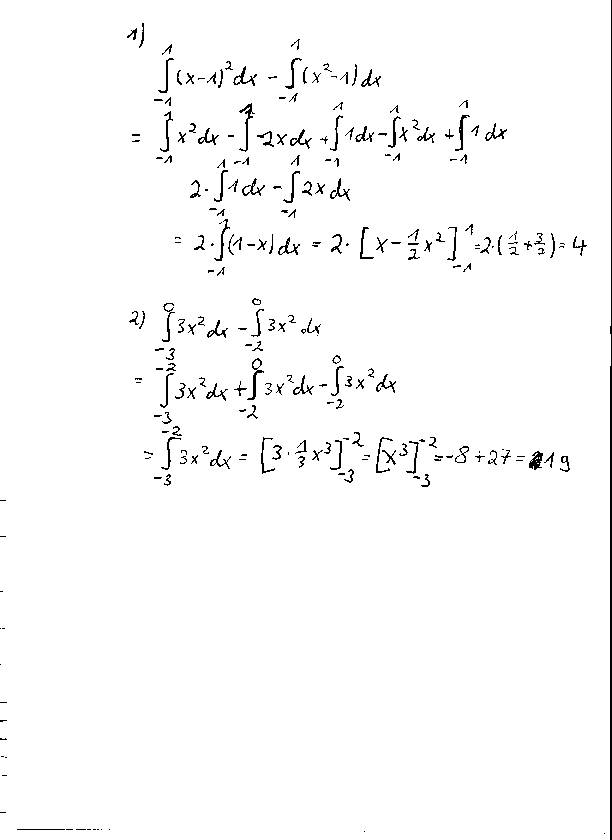 1)
∫₋₁¹(x-1)²dx - ∫₋₁¹(x²-1)dx
= ∫₋₁¹x²dx - ∫₋₁¹-2xdx + ∫₋₁¹1dx - ∫₋₁¹x²dx + ∫₋₁¹1dx
2·∫₋₁¹1dx - ∫₋₁¹2xdx
= 2·∫₋₁¹(1-x)dx = 2·[x - 1/2 x²]₋₁¹ = 2·(1/2 + 3/2) = 4
2) ∫₋₃⁰3x²dx - ∫₋₂⁰3x²dx
= ∫₋₃⁻²3x²dx + ∫₋₂⁰3x²dx - ∫₋₂⁰3x²dx
= ∫₋₃⁻²3x²dx = [3·1/3 x³]₋₃⁻² = [x³]₋₃⁻² = -8+27 = 19